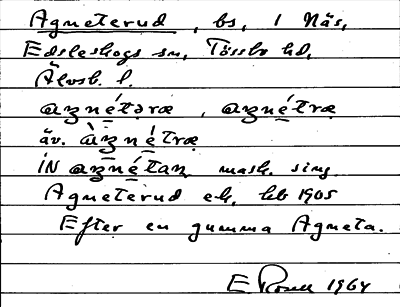 Agneterud, bs, 1 Näs,
Edsleskogs sn, Tössbo hd,
Älvsb. l.
aznétəræ, aznétræ
äv. àznétræ
IN aznétan mask. sing.
Agneterud ek, hb 1905
Efter en gumma Agneta.
E 1964